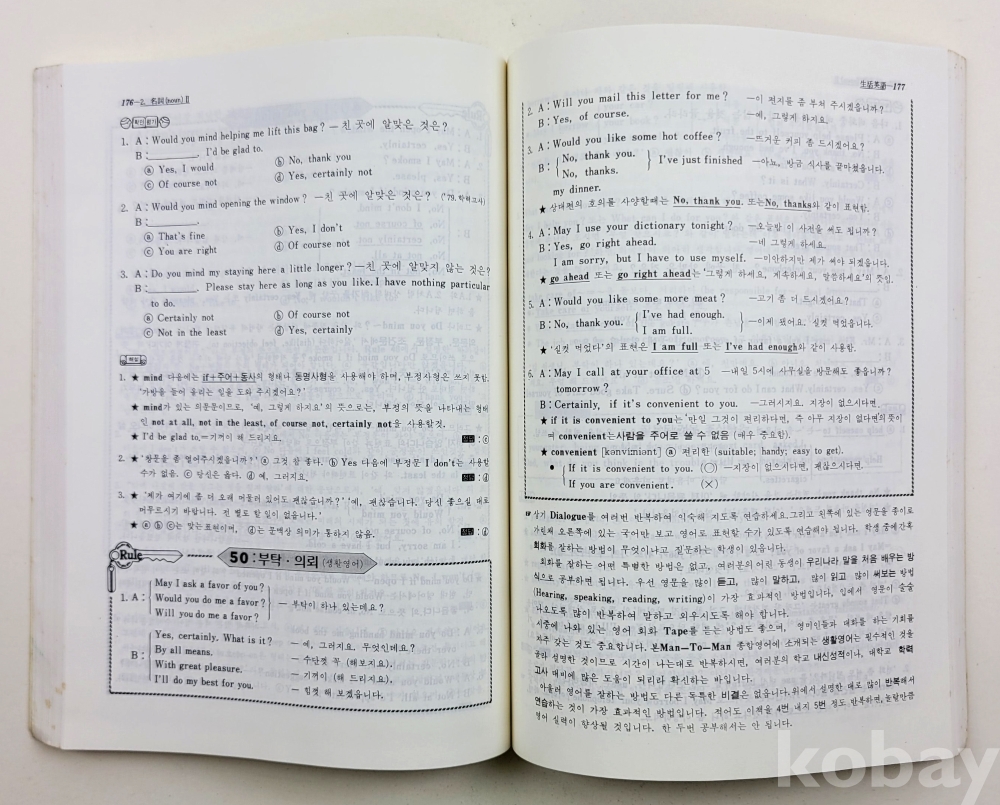 176—2. 名詞(noun)Ⅱ
확인 평가
1. A : Would you mind helping me lift this bag? — 친 곳에 알맞은 것은?
B : ________. I'd be glad to.
ⓐ Yes, I would ⓑ No, thank you
ⓒ Of course not ⓓ Yes, certainly not
2. A : Would you mind opening the window? —친 곳에 알맞은 것은? ('79. 학력고사)
B : ________.
ⓐ That's fine ⓑ Yes, I don't
ⓒ You are right ⓓ Of course not
3. A : Do you mind my staying here a little longer? —친 곳에 알맞지 않는 것은?
B : ________. Please stay here as long as you like. I have nothing particular
to do.
ⓐ Certainly not ⓑ Of course not
ⓒ Not in the least ⓓ Yes, certainly
해설
1. ★ mind 다음에는 if+주어+동사의 형태나 동명사형을 사용해야 하며, 부정사형은 쓰지 못함.
'가방을 들어 올리는 일을 도와 주시겠어요?'
★ mind가 있는 의문문이므로, '예, 그렇게 하지요'의 뜻으로는, 부정의 뜻을 나타내는 형태
인 not at all, not in the least, of course not, certainly not을 사용할것.
★ I'd be glad to.=기꺼이 해 드리지요. 정답 : ⓒ
2. ★ '창문을 좀 열어주시겠습니까?' ⓐ 그것 참 좋다. ⓑ Yes 다음에 부정문 I don't는 사용할
수가 없음. ⓒ 당신은 옳다. ⓓ 예, 그러지요. 정답 : ⓓ
3. ★ '제가 여기에 좀 더 오래 머물러 있어도 괜찮습니까?' '예, 괜찮습니다. 당신 좋으실 대로
머무르시기 바랍니다. 전 별로 할 일이 없습니다.'
★ ⓐ ⓑ ⓒ는 맞는 표현이며, ⓓ는 문맥상 의미가 통하지 않음. 정답 : ⓓ
Rule 50 : 부탁 · 의뢰 (생활영어)
May I ask a favor of you?
1. A : Would you do me a favor? — 부탁이 하나 있는데요?
Will you do me a favor?
Yes, certainly. What is it? — 예, 그러지요. 무엇인데요?
B : By all means. — 수단껏 꼭 (해보지요).
With great pleasure. — 기꺼이 (해 드리지요).
I'll do my best for you. — 힘껏 해 보겠읍니다.
生活英語—177
2. A : Will you mail this letter for me? —이 편지를 좀 부쳐 주시겠읍니까?
B : Yes, of course. —예, 그렇게 하지요.
3. A : Would you like some hot coffee? —뜨거운 커피 좀 드시겠어요?
B : No, thank you. No, thanks. I've just finished —아뇨, 방금 식사를 끝마쳤읍니다.
my dinner.
★ 상대편의 호의를 사양할때는 No, thank you. 또는 No, thanks와 같이 표현함.
4. A : May I use your dictionary tonight? —오늘밤 이 사전을 써도 됩니까?
B : Yes, go right ahead. —네 그렇게 하세요.
I am sorry, but I have to use myself. —미안하지만 제가 써야 되겠읍니다.
★ go ahead 또는 go right ahead는 '그렇게 하세요, 계속하세요, 말씀하세요'의 뜻임.
5. A : Would you like some more meat? —고기 좀 더 드시겠어요?
B : No, thank you. I've had enough. I am full. —이제 됐어요. 실컷 먹었읍니다.
★ '실컷 먹었다'의 표현은 I am full 또는 I've had enough와 같이 사용함.
6. A : May I call at your office at 5 —내일 5시에 사무실을 방문해도 좋읍니까?
tomorrow?
B : Certainly, if it's convenient to you. —그러시지요. 지장이 없으시다면.
★ if it is convenient to you는 '만일 그것이 편리하다면, 즉 아무 지장이 없다면'의 뜻이
며 convenient는 사람을 주어로 쓸 수 없음 (매우 중요함).
★ convenient [kənvíːniənt] ⓐ 편리한 (suitable; handy; easy to get).
● If it is convenient to you. (○) —지장이 없으시다면, 괜찮으시다면.
If you are convenient. (×)
☞ 상기 Dialogue를 여러번 반복하여 익숙해 지도록 연습하세요. 그리고 왼쪽에 있는 영문을 종이로
가린채 오른쪽에 있는 국어만 보고 영어로 표현할 수가 있도록 연습해야 됩니다. 학생 중에 간혹
회화를 잘하는 방법이 무엇이냐고 질문하는 학생이 있읍니다.
회화를 잘하는 어떤 특별한 방법은 없고, 여러분의 어린 동생이 우리나라 말을 처음 배우는 방
식으로 공부하면 됩니다. 우선 영문을 많이 듣고, 많이 말하고, 많이 읽고 많이 써보는 방법
(Hearing, speaking, reading, writing)이 가장 효과적인 방법입니다. 입에서 영문이 술술
나오도록 많이 반복하여 말하고 외우시도록 해야 합니다.
시중에 나와 있는 영어 회화 Tape를 듣는 방법도 좋으며, 영미인들과 대화를 하는 기회를
자주 갖는 것도 중요합니다. 본 Man—To—Man 종합영어에 소개되는 생활영어는 필수적인 것을
골라 설명한 것이므로 시간이 나는대로 반복하시면, 여러분의 학교 내신성적이나, 대학교 학력
고사 대비에 많은 도움이 되리라 확신하는 바입니다.
아울러 영어를 잘하는 방법도 다른 독특한 비결은 없읍니다. 위에서 설명한 대로 많이 반복해서
연습하는 것이 가장 효과적인 방법입니다. 적어도 이책을 4번 내지 5번 정도 반복하면, 놀랄만큼
영어 실력이 향상될 것입니다. 한 두번 공부해서는 안 됩니다.
kobay